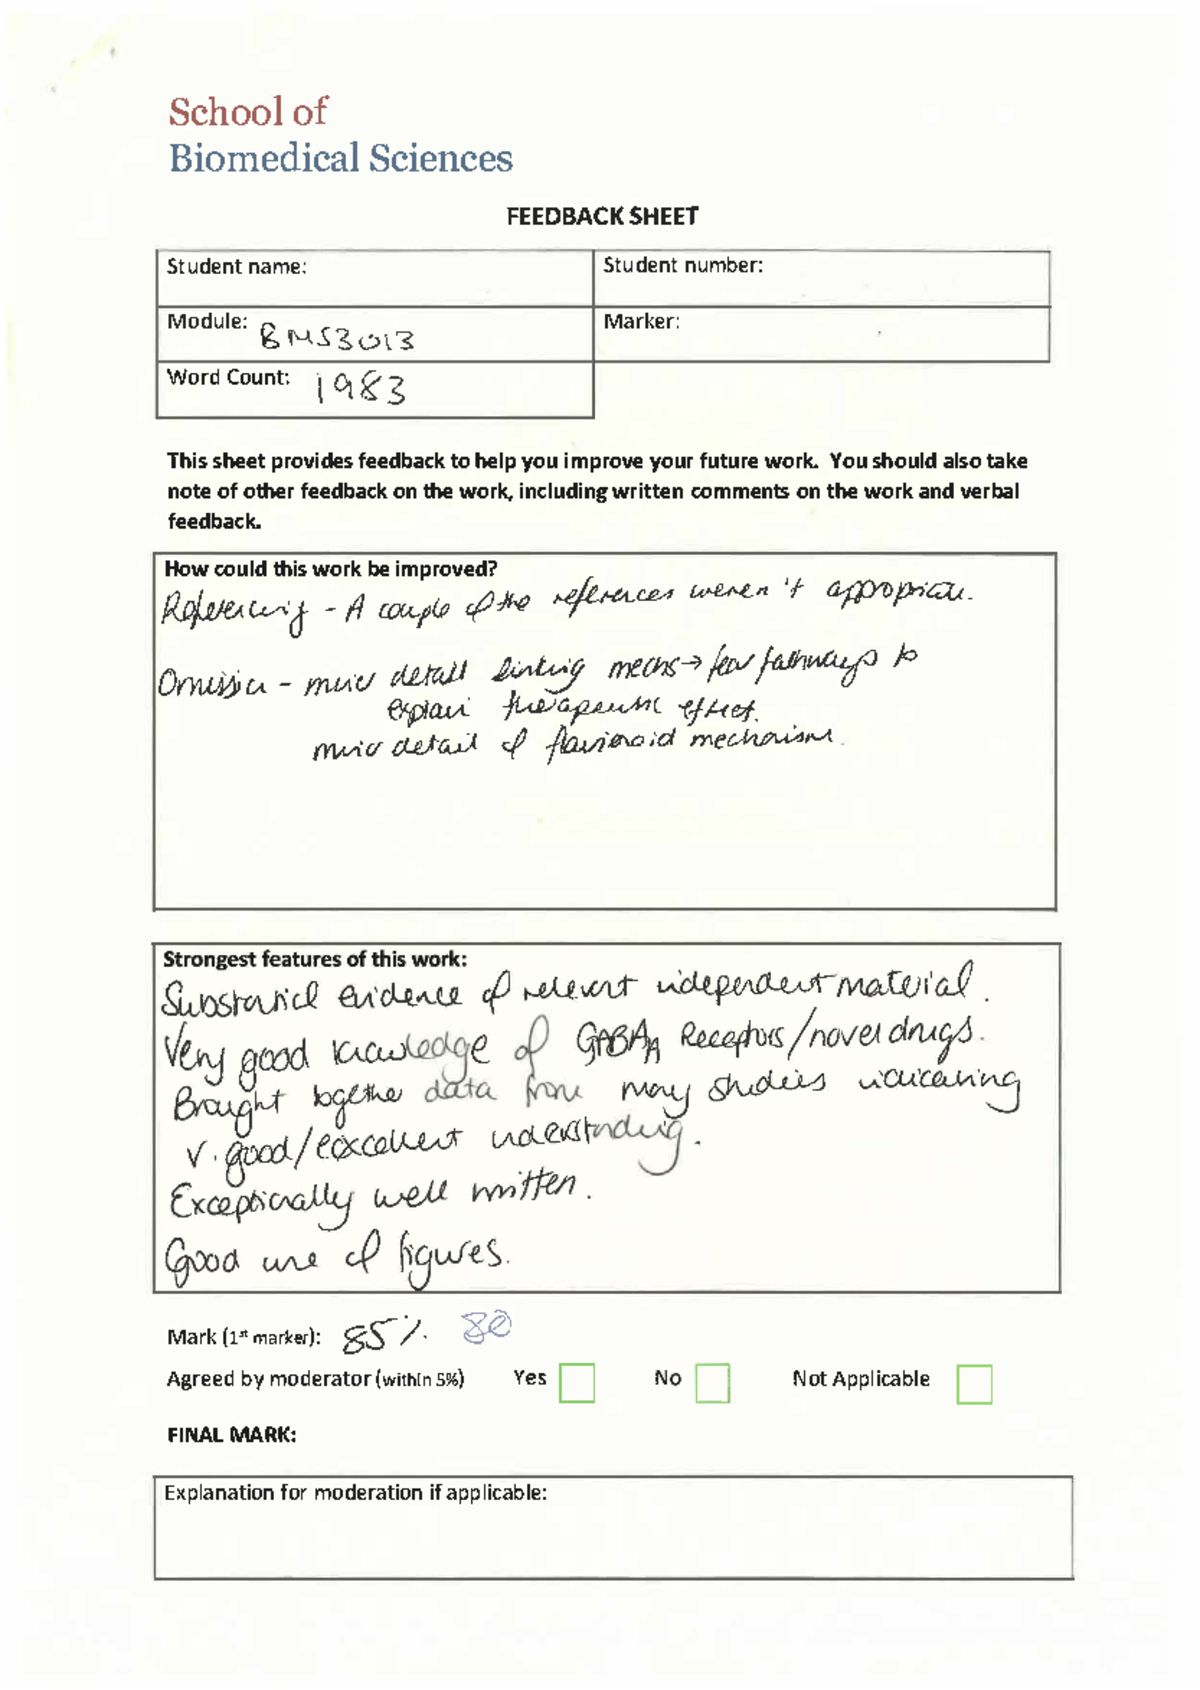 School of
Biomedical Sciences
FEEDBACK SHEET
Student name:
Student number:
Module: BMS3013
Marker:
Word Count: 1983
This sheet provides feedback to help you improve your future work. You should also take
note of other feedback on the work, including written comments on the work and verbal
feedback.
How could this work be improved?
Referencing - A couple of the references weren't appropriate.
Omission - more detail linking mechs → fear pathways to
explain therapeutic effect.
more detail of flavonoid mechanism.
Strongest features of this work:
Substantial evidence of relevant independent material.
Very good knowledge of GABAA Receptors/novel drugs.
Brought together data from many studies indicating
v. good/excellent understanding.
Exceptionally well written.
Good use of figures.
Mark (1st marker): 85% 80
Agreed by moderator (within 5%) Yes No Not Applicable
FINAL MARK:
Explanation for moderation if applicable: